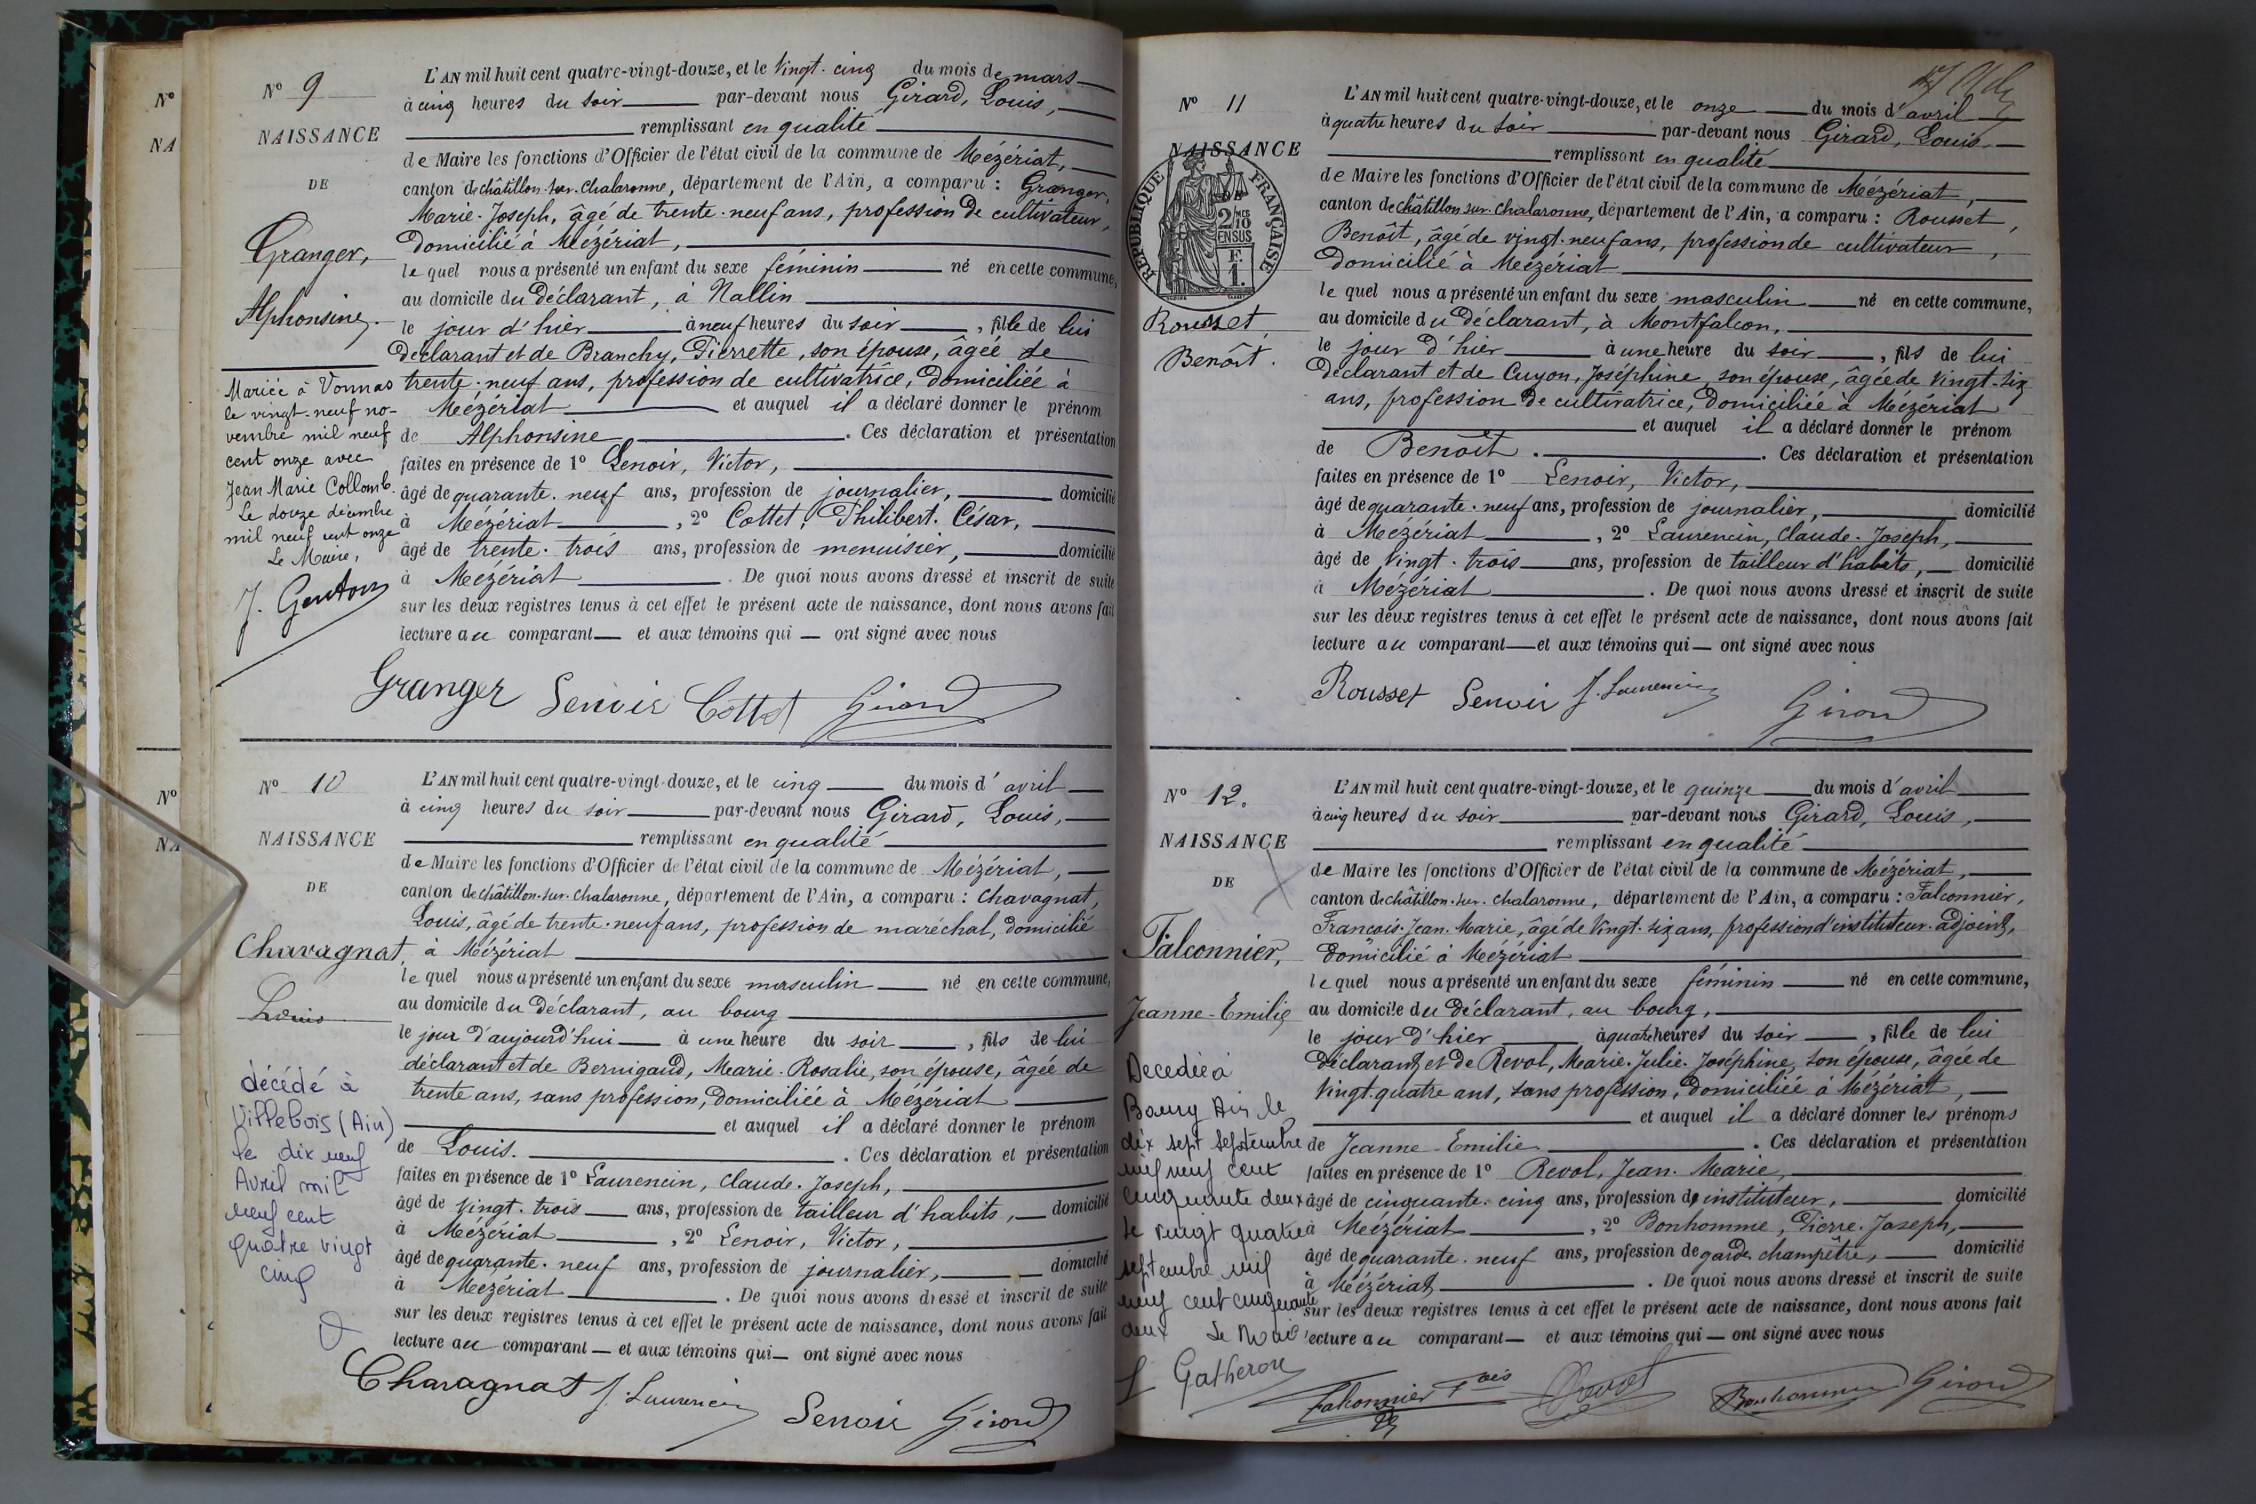 Nº 9
NAISSANCE
DE
Granger,
Alphonsine.
Mariée à Vonnas
le vingt-neuf no-
vembre mil neuf
cent onze avec
Jean Marie Collomb.
Le douze décembre
mil neuf cent onze
Le Maire,
L'AN mil huit cent quatre-vingt-douze, et le Vingt-cinq du mois de mars
à cinq heures du soir par-devant nous Girard, Louis,
remplissant en qualité
de Maire les fonctions d'Officier de l'état civil de la commune de Mézériat,
canton de châtillon-sur-chalaronne, département de l'Ain, a comparu : Granger,
Marie-Joseph, âgé de trente-neuf ans, profession de cultivateur,
domicilié à Mézériat,
le quel nous a présenté un enfant du sexe féminin né en cette commune,
au domicile du déclarant, à Nallin
le jour d'hier à neuf heures du soir, fille de lui
déclarant et de Branchy, Pierrette, son épouse, âgée de
trente-neuf ans, profession de cultivatrice, domiciliée à
Mézériat et auquel il a déclaré donner le prénom
de Alphonsine. Ces déclaration et présentation
faites en présence de 1º Lenoir, Victor,
âgé de quarante-neuf ans, profession de journalier, domicilié
à Mézériat, 2º Cottet, Philibert-César,
âgé de trente-trois ans, profession de menuisier, domicilié
à Mézériat. De quoi nous avons dressé et inscrit de suite
sur les deux registres tenus à cet effet le présent acte de naissance, dont nous avons fait
lecture au comparant et aux témoins qui ont signé avec nous
Granger Lenoir Cottet Girard
Nº 10
NAISSANCE
DE
Chavagnat,
Louis
décédé à
Villebois (Ain)
le dix neuf
Avril mil
neuf cent
quatre vingt
cinq
L'AN mil huit cent quatre-vingt-douze, et le cinq du mois d'avril
à cinq heures du soir par-devant nous Girard, Louis,
remplissant en qualité
de Maire les fonctions d'Officier de l'état civil de la commune de Mézériat,
canton de châtillon-sur-chalaronne, département de l'Ain, a comparu : Chavagnat,
Louis, âgé de trente-neuf ans, profession de maréchal, domicilié
à Mézériat
le quel nous a présenté un enfant du sexe masculin né en cette commune,
au domicile du déclarant, au bourg
le jour d'aujourd'hui à une heure du soir, fils de lui
déclarant et de Bernigaud, Marie-Rosalie, son épouse, âgée de
trente ans, sans profession, domiciliée à Mézériat
et auquel il a déclaré donner le prénom
de Louis. Ces déclaration et présentation
faites en présence de 1º Laurencin, Claude-Joseph,
âgé de vingt-trois ans, profession de tailleur d'habits, domicilié
à Mézériat, 2º Lenoir, Victor,
âgé de quarante-neuf ans, profession de journalier, domicilié
à Mézériat. De quoi nous avons dressé et inscrit de suite
sur les deux registres tenus à cet effet le présent acte de naissance, dont nous avons fait
lecture au comparant et aux témoins qui ont signé avec nous
Chavagnat J. Laurencin Lenoir Girard
Nº 11
NAISSANCE
RÉPUBLIQUE FRANÇAISE
2/10
EN SUS
Rousset,
Benôît.
L'AN mil huit cent quatre-vingt-douze, et le onze du mois d'avril
à quatre heures du soir par-devant nous Girard, Louis
remplissant en qualité
de Maire les fonctions d'Officier de l'état civil de la commune de Mézériat,
canton de châtillon sur chalaronne, département de l'Ain, a comparu : Rousset,
Benôît, âgé de vingt-neuf ans, profession de cultivateur,
domicilié à Mézériat
le quel nous a présenté un enfant du sexe masculin né en cette commune,
au domicile du déclarant, à Montfalcon,
le jour d'hier à une heure du soir, fils de lui
déclarant et de Guyon, Joséphine, son épouse, âgée de vingt-six
ans, profession de cultivatrice, domiciliée à Mézériat
et auquel il a déclaré donner le prénom
de Benôît. Ces déclaration et présentation
faites en présence de 1º Lenoir, Victor,
âgé de quarante-neuf ans, profession de journalier, domicilié
à Mézériat, 2º Laurencin, Claude-Joseph,
âgé de vingt-trois ans, profession de tailleur d'habits, domicilié
à Mézériat. De quoi nous avons dressé et inscrit de suite
sur les deux registres tenus à cet effet le présent acte de naissance, dont nous avons fait
lecture au comparant et aux témoins qui ont signé avec nous
Rousset Lenoir J. Laurencin Girard
Nº 12.
NAISSANCE
DE
Falconnier,
Jeanne-Emilie
Decedée à
Bourg Ain le
dix sept septembre
mil neuf cent
cinquante deux
le vingt quatre
septembre mil
neuf cent cinquante
deux Le Maire
L'AN mil huit cent quatre-vingt-douze, et le quinze du mois d'avril
à cinq heures du soir par-devant nous Girard, Louis,
remplissant en qualité
de Maire les fonctions d'Officier de l'état civil de la commune de Mézériat,
canton de châtillon-sur-chalaronne, département de l'Ain, a comparu : Falconnier,
François-Jean-Marie, âgé de vingt-six ans, profession d'instituteur-adjoint,
domicilié à Mézériat
le quel nous a présenté un enfant du sexe féminin né en cette commune,
au domicile du déclarant, au bourg,
le jour d'hier à quatre heures du soir, fille de lui
déclarant et de Revol, Marie-Julie-Joséphine, son épouse, âgée de
vingt-quatre ans, sans profession, domiciliée à Mézériat,
et auquel il a déclaré donner les prénoms
de Jeanne-Emilie. Ces déclaration et présentation
faites en présence de 1º Revol, Jean-Marie,
âgé de cinquante-cinq ans, profession de instituteur, domicilié
à Mézériat, 2º Bonhomme, Pierre-Joseph,
âgé de quarante-neuf ans, profession de garde champêtre, domicilié
à Mézériat. De quoi nous avons dressé et inscrit de suite
sur les deux registres tenus à cet effet le présent acte de naissance, dont nous avons fait
lecture au comparant et aux témoins qui ont signé avec nous
Gatheron Falconnier Fçois Revol Bonhomme Girard